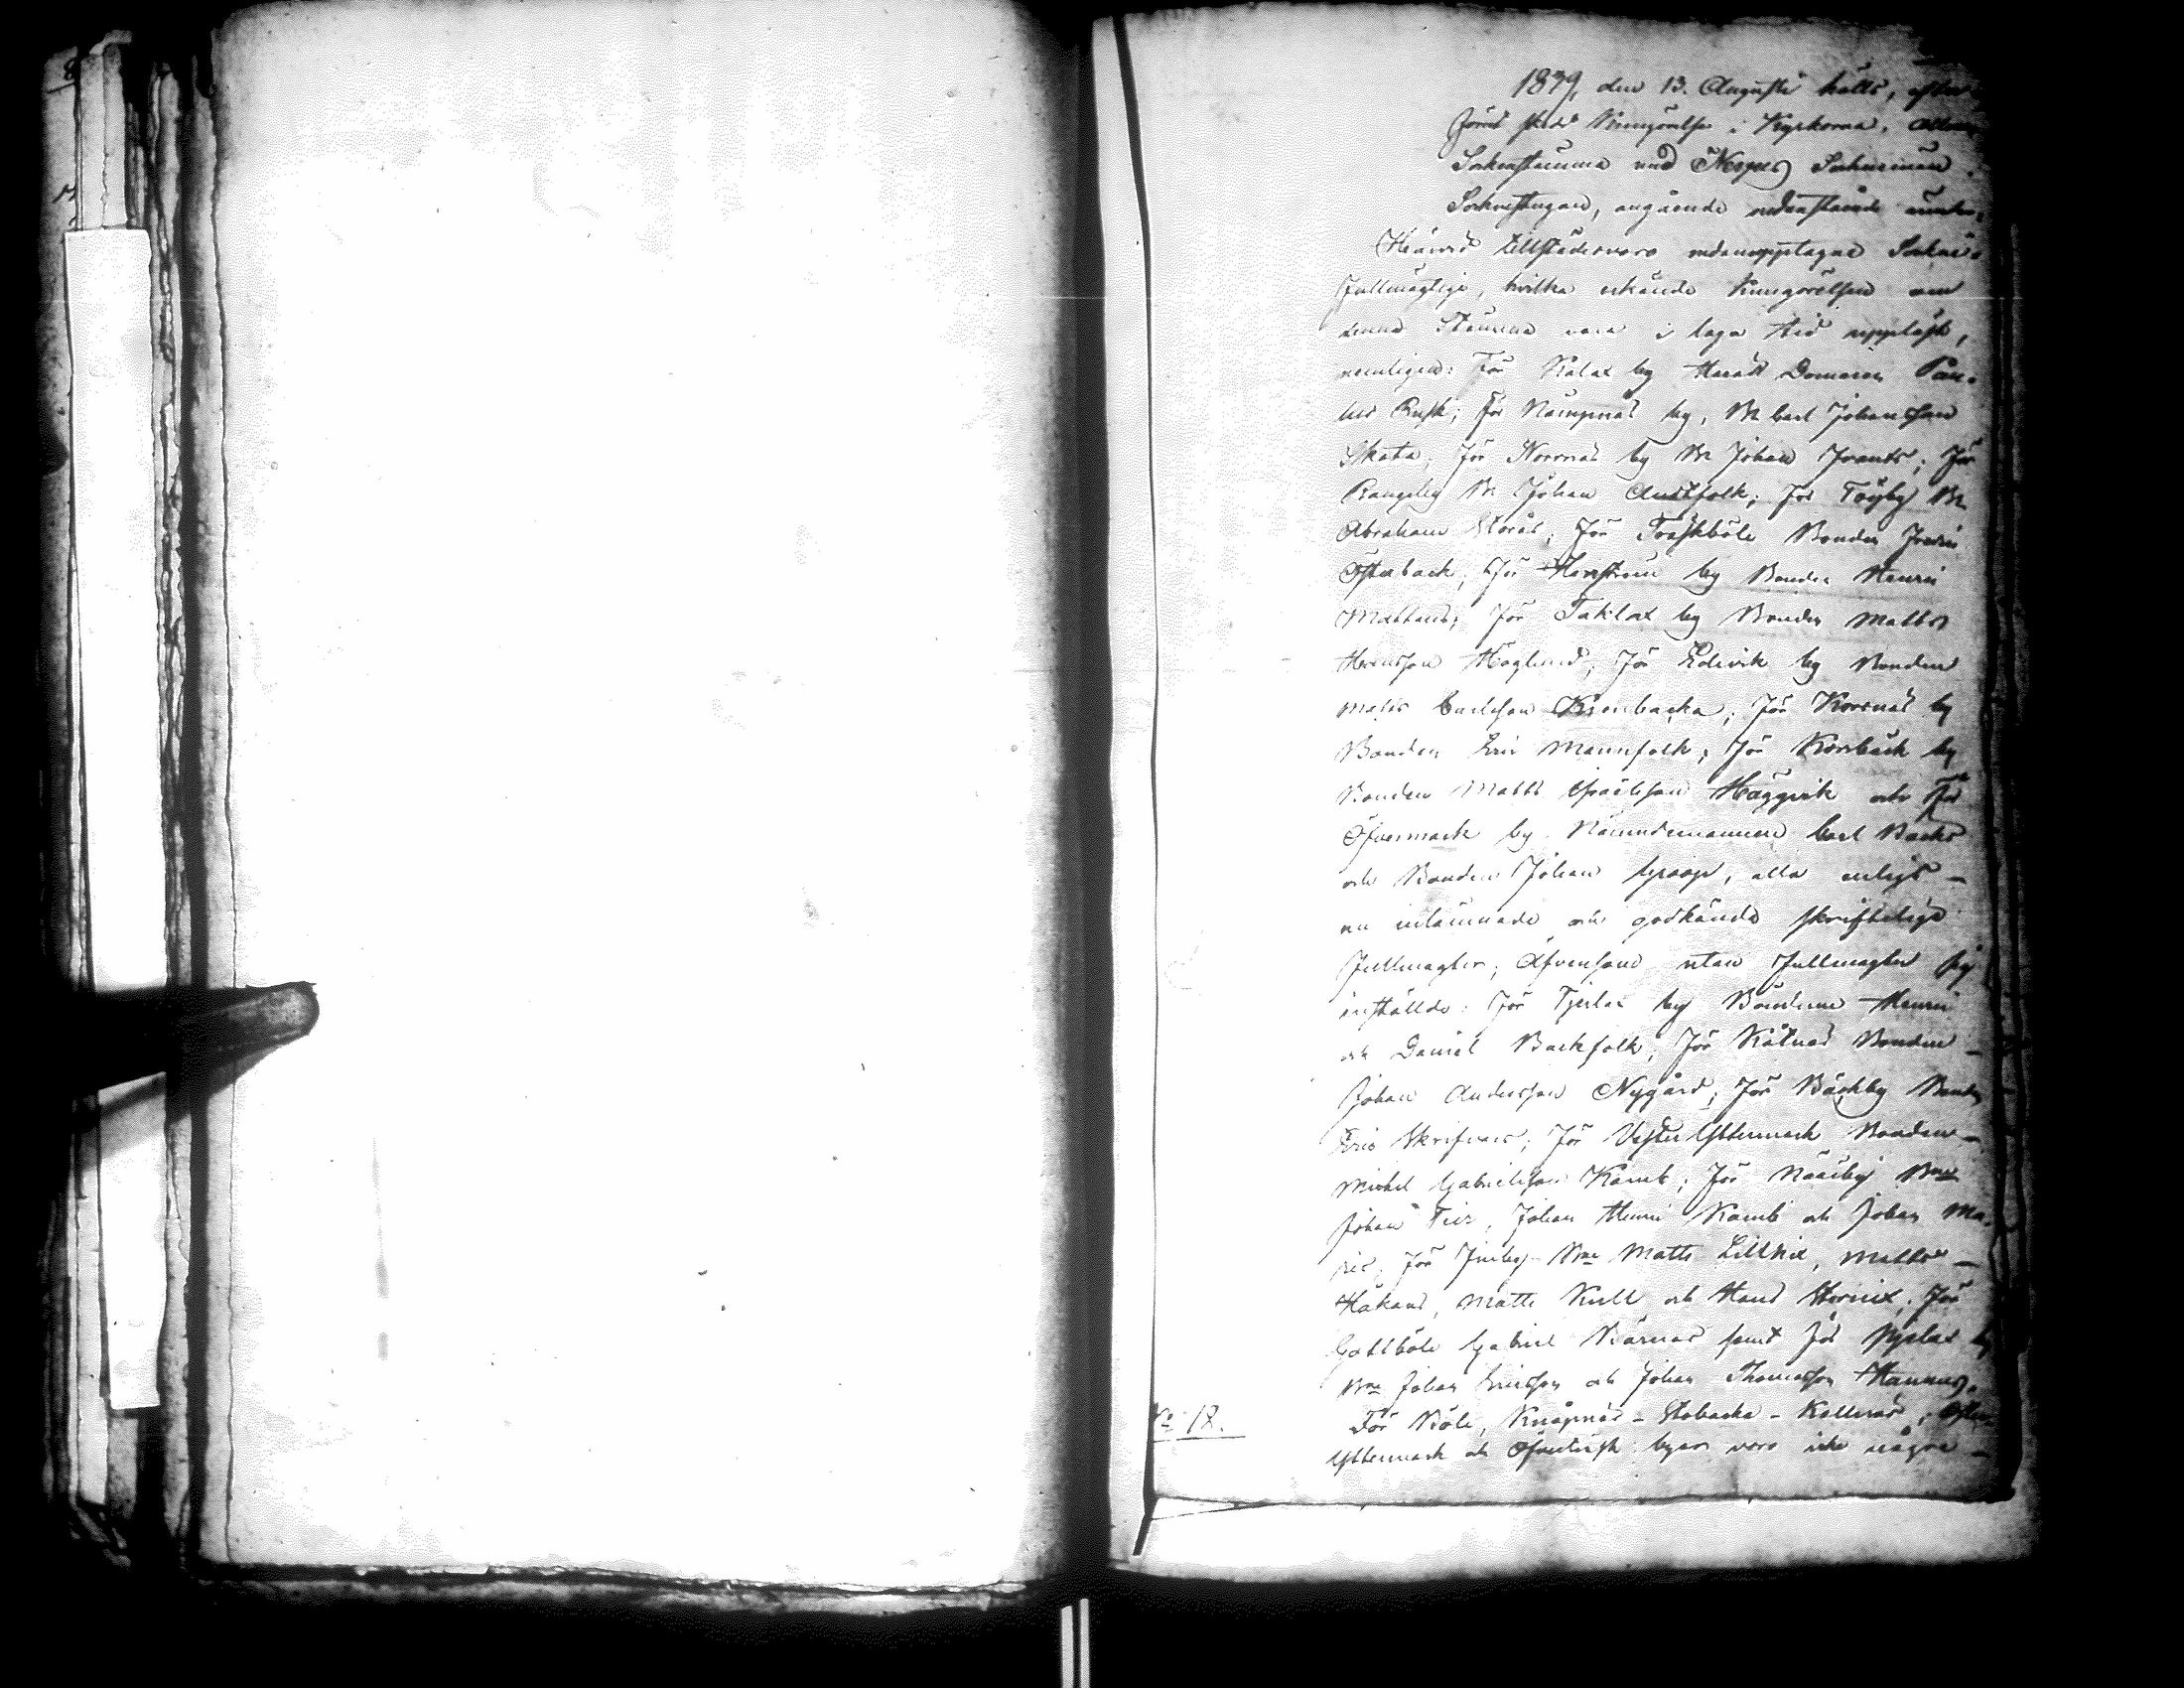 1839, den 13. Augusti hölls, efter
förut skedd Kungörelse i Kyrkorna, allmän
Sockenstämma med Nerpes Sockenmän i
Sockenstugan, angående nedanstående ämnen,
Härvid tillstädesvoro nedanupptagne Sockne-
fullmägtige, hvilka erkände kungörelsen om
denna Stämma vara i laga tid uppläst,
nemligen: För Kalax by Härads Domaren
Rusk; för Nämpnäs by, Bn Carl Johansson
Skata; för Norrnäs by Bn Johan Frants; för
Rangsby Bn Johan Austfolk; för Töjby Bn
Abraham Storås; för Träskböle Bonden
Österback; för Harrström by Bonden Henric
Mattans; för Taklax by Bonden Matts
Hoglund; för Edsvik by Bonden
Matts Carlsson Krenbacka; för Korsnäs by
Bonden Eric Mannfolk; för Korsbäck by
Bonden Matts Israelsson Häggvik och för
Öfvermark by Nämndemannen Carl Backs
och Bonden Johan Groop, alla enligt
nu inlämnade och godkända skriftelige
Fullmagter; Äfvensom utan Fullmagter sig
inställde: för Tjerlax by Bönderne Henric
och Daniel Backfolk; för Kåtnäs Bonden
Johan Andersson Nygård; för Bäckby Bonden
Eric Skrifvars; för Vester Yttermark Bonden
Michel Gabrielsson Kamb; för Näsby Bne
Johan Teir, Johan Henric Kamb och Johan
för Finby Bne Matts Lillkix, Matts
Håkans, Matts Kull och Hans Storkix; för
Gottböle Gabriel Kärnas samt för Pjelax by
Bne Johan Ericsson och Johan Thomasson Hannus.
No 18.
För Böle, Knåpnäs - Stobacka - Kallnäs, Öster
Yttermark och Öfverträsk byar voro icke några